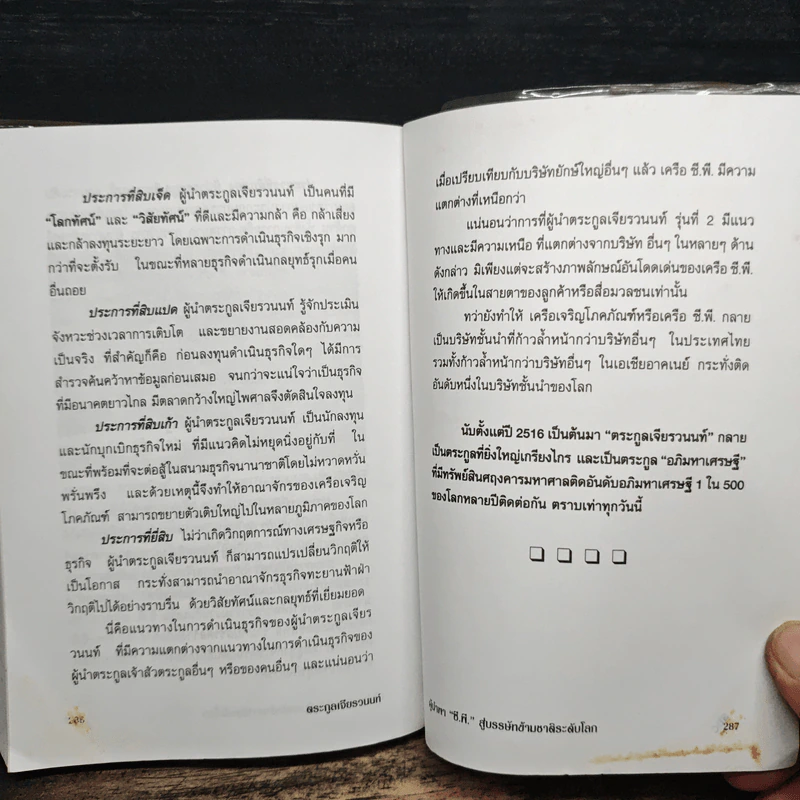 ประการที่สิบเจ็ด ผู้นำตระกูลเจียรวนนท์ เป็นคนที่มี
“โลกทัศน์” และ “วิสัยทัศน์” ที่ดีและมีความกล้า คือ กล้าเสี่ยง
และกล้าลงทุนระยะยาว โดยเฉพาะการดำเนินธุรกิจเชิงรุก มาก
กว่าที่จะตั้งรับ ในขณะที่หลายธุรกิจดำเนินกลยุทธ์รุกเมื่อคน
อื่นถอย
ประการที่สิบแปด ผู้นำตระกูลเจียรวนนท์ รู้จักประเมิน
จังหวะช่วงเวลาการเติบโต และขยายงานสอดคล้องกับความ
เป็นจริง ที่สำคัญก็คือ ก่อนลงทุนดำเนินธุรกิจใดๆ ได้มีการ
สำรวจค้นคว้าหาข้อมูลก่อนเสมอ จนกว่าจะแน่ใจว่าเป็นธุรกิจ
ที่มีอนาคตยาวไกล มีตลาดกว้างใหญ่ไพศาลจึงตัดสินใจลงทุน
ประการที่สิบเก้า ผู้นำตระกูลเจียรวนนท์ เป็นนักลงทุน
และนักบุกเบิกธุรกิจใหม่ ที่มีแนวคิดไม่หยุดนิ่งอยู่กับที่ ใน
ขณะที่พร้อมที่จะต่อสู้ในสนามธุรกิจนานาชาติโดยไม่หวาดหวั่น
พรั่นพรึง และด้วยเหตุนี้จึงทำให้อาณาจักรของเครือเจริญ
โภคภัณฑ์ สามารถขยายตัวเติบใหญ่ไปในหลายภูมิภาคของโลก
ประการที่ยี่สิบ ไม่ว่าเกิดวิกฤตการณ์ทางเศรษฐกิจหรือ
ธุรกิจ ผู้นำตระกูลเจียรวนนท์ ก็สามารถแปรเปลี่ยนวิกฤติให้
เป็นโอกาส กระทั่งสามารถนำอาณาจักรธุรกิจทะยานฟ้าฝ่า
วิกฤติไปได้อย่างราบรื่น ด้วยวิสัยทัศน์และกลยุทธ์ที่เยี่ยมยอด
นี่คือแนวทางในการดำเนินธุรกิจของผู้นำตระกูลเจียร
วนนท์ ที่มีความแตกต่างจากแนวทางในการดำเนินธุรกิจของ
ผู้นำตระกูลเจ้าสัวตระกูลอื่นๆ หรือของคนอื่นๆ และแน่นอนว่า
286 ตระกูลเจียรวนนท์
เมื่อเปรียบเทียบกับบริษัทยักษ์ใหญ่อื่นๆ แล้ว เครือ ซี.พี. มีความ
แตกต่างที่เหนือกว่า
แน่นอนว่าการที่ผู้นำตระกูลเจียรวนนท์ รุ่นที่ 2 มีแนว
ทางและมีความเหนือ ที่แตกต่างจากบริษัท อื่นๆ ในหลายๆ ด้าน
ดังกล่าว มิเพียงแต่จะสร้างภาพลักษณ์อันโดดเด่นของเครือ ซี.พี.
ให้เกิดขึ้นในสายตาของลูกค้าหรือสื่อมวลชนเท่านั้น
ทว่ายังทำให้ เครือเจริญโภคภัณฑ์หรือเครือ ซี.พี. กลาย
เป็นบริษัทชั้นนำที่ก้าวล้ำหน้ากว่าบริษัทอื่นๆ ในประเทศไทย
รวมทั้งก้าวล้ำหน้ากว่าบริษัทอื่นๆ ในเอเชียอาคเนย์ กระทั่งติด
อันดับหนึ่งในบริษัทชั้นนำของโลก
นับตั้งแต่ปี 2516 เป็นต้นมา “ตระกูลเจียรวนนท์” กลาย
เป็นตระกูลที่ยิ่งใหญ่เกรียงไกร และเป็นตระกูล “อภิมหาเศรษฐี”
ที่มีทรัพย์สินศฤงคารมหาศาลติดอันดับอภิมหาเศรษฐี 1 ใน 500
ของโลกหลายปีติดต่อกัน ตราบเท่าทุกวันนี้
ผู้นำพา “ซี.พี.” สู่บรรษัทข้ามชาติระดับโลก 287